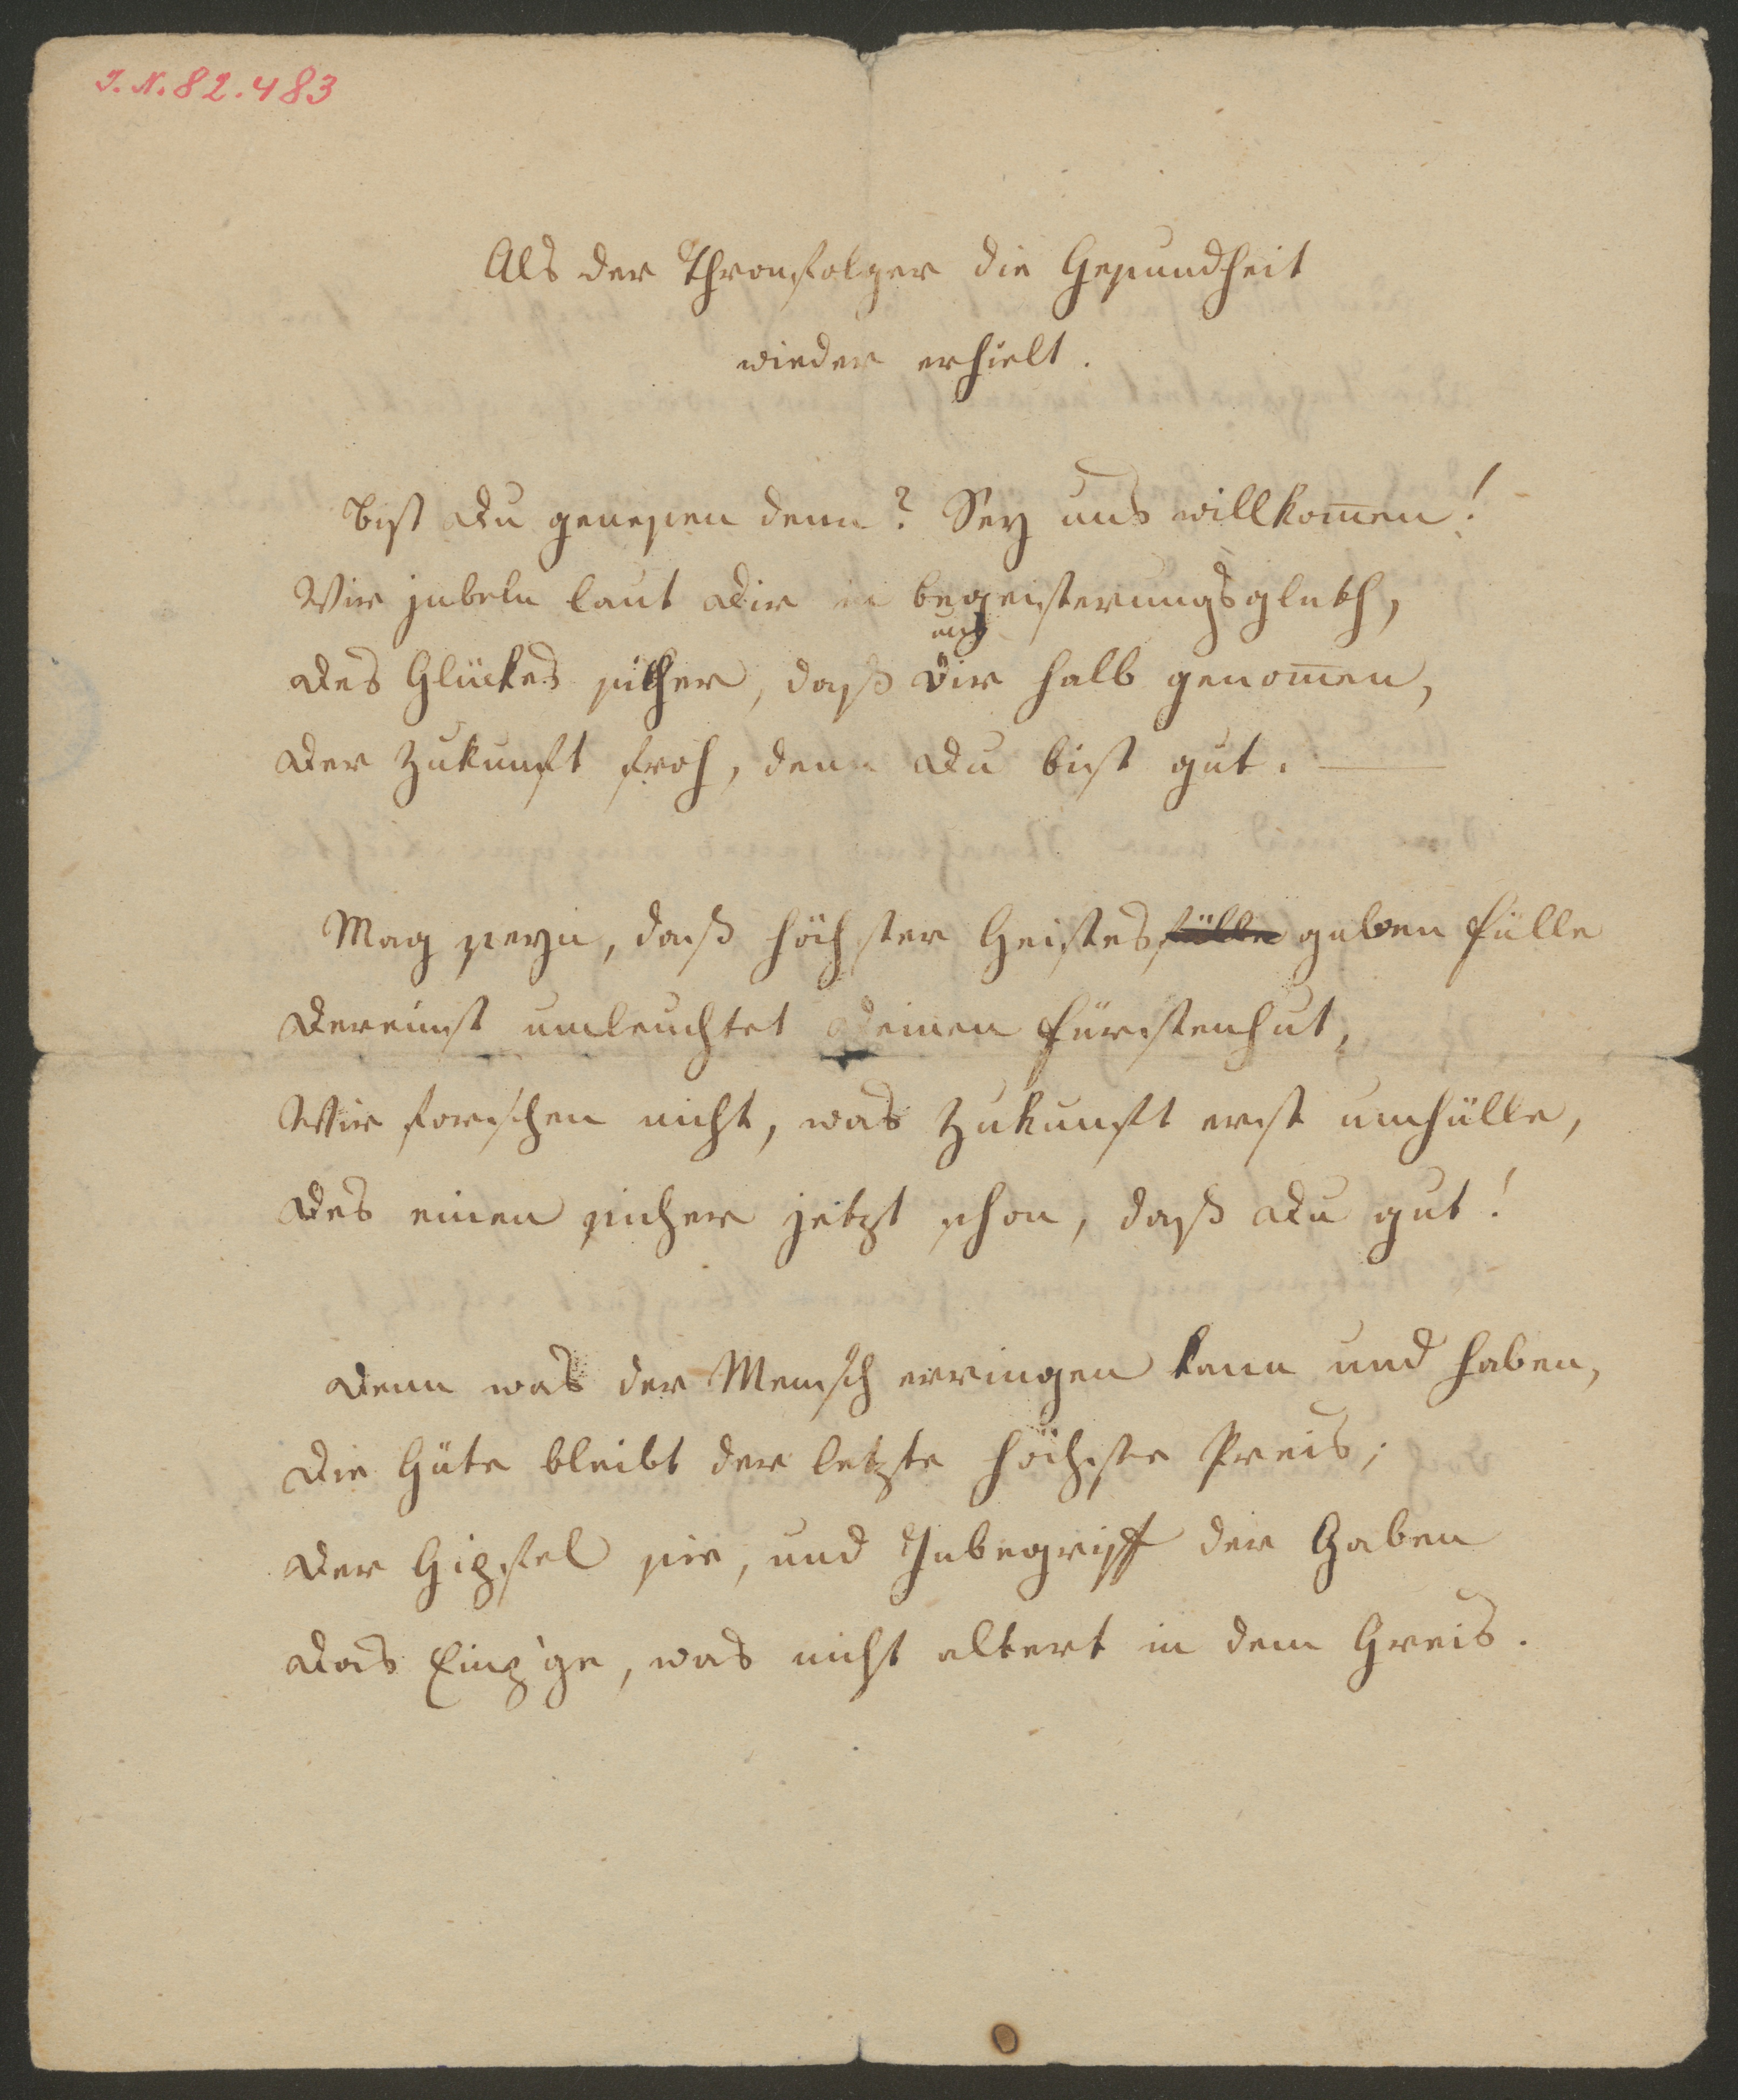 I. N. 82.483
Als der Thronfolger die Gesundheit
wieder erhielt.
Bist Du genesen denn? Sey uns willkom̅en!
Wir jubeln laut Dir in Begeisterungsgluth,
uns
Des Glückes sicher, das Dir halb genom̅en,
Der Zukunft froh, denn Du bist gut. —
Mag seyn, daß höchster Geistesfülle gaben Fülle
Dereinst umleuchtet Deinen Fürstenhut,
Wir forschen nicht, was Zukunft erst umhülle,
Des einen sicher jetzt schon, daß Du gut!
Denn was der Mensch erringen kann und haben,
Die Güte bleibt der letzte höchste Preis;
Der Gipfel sie, und Inbegriff der Gaben
Das Einz'ge, was nicht altert in dem Greis.